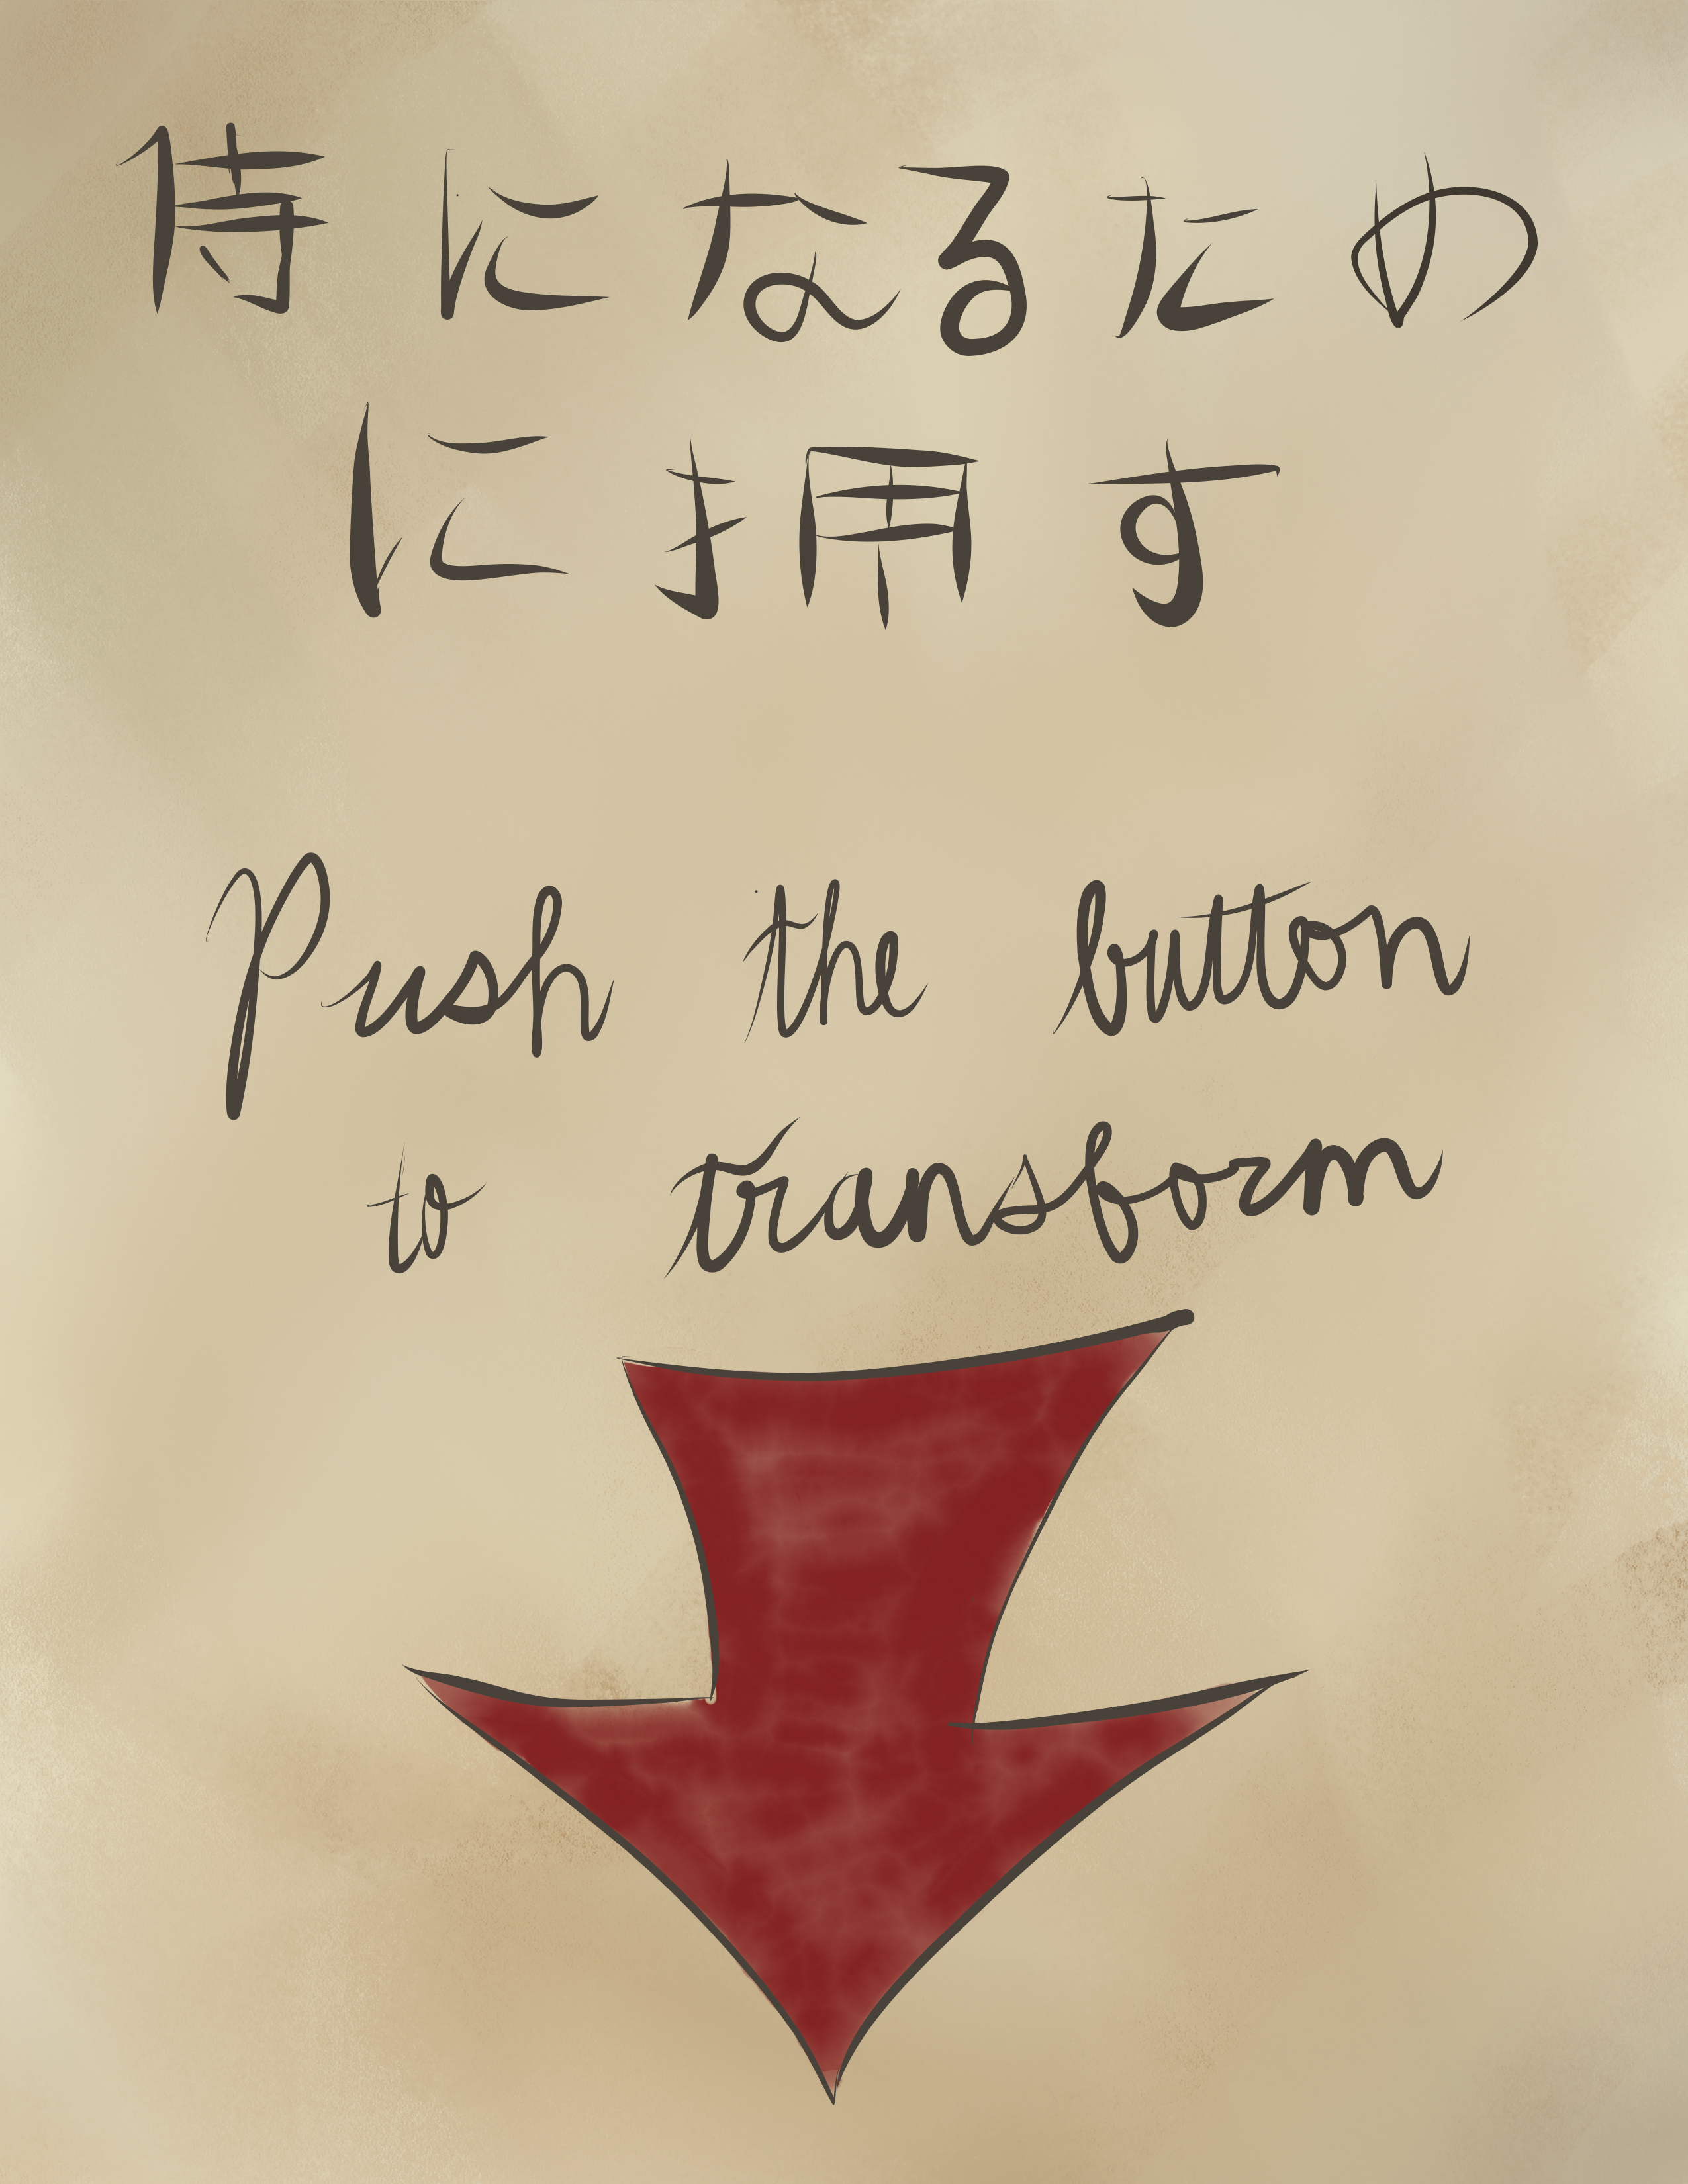 侍になるため
に押す
Push the button
to transform